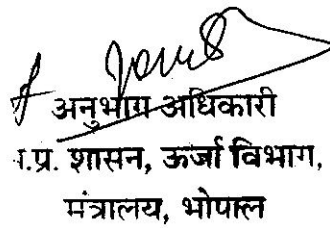 अनुभाग अधिकारी
.प्र. शासन, ऊर्जा विभाग,
मंत्रालय, भोपाल